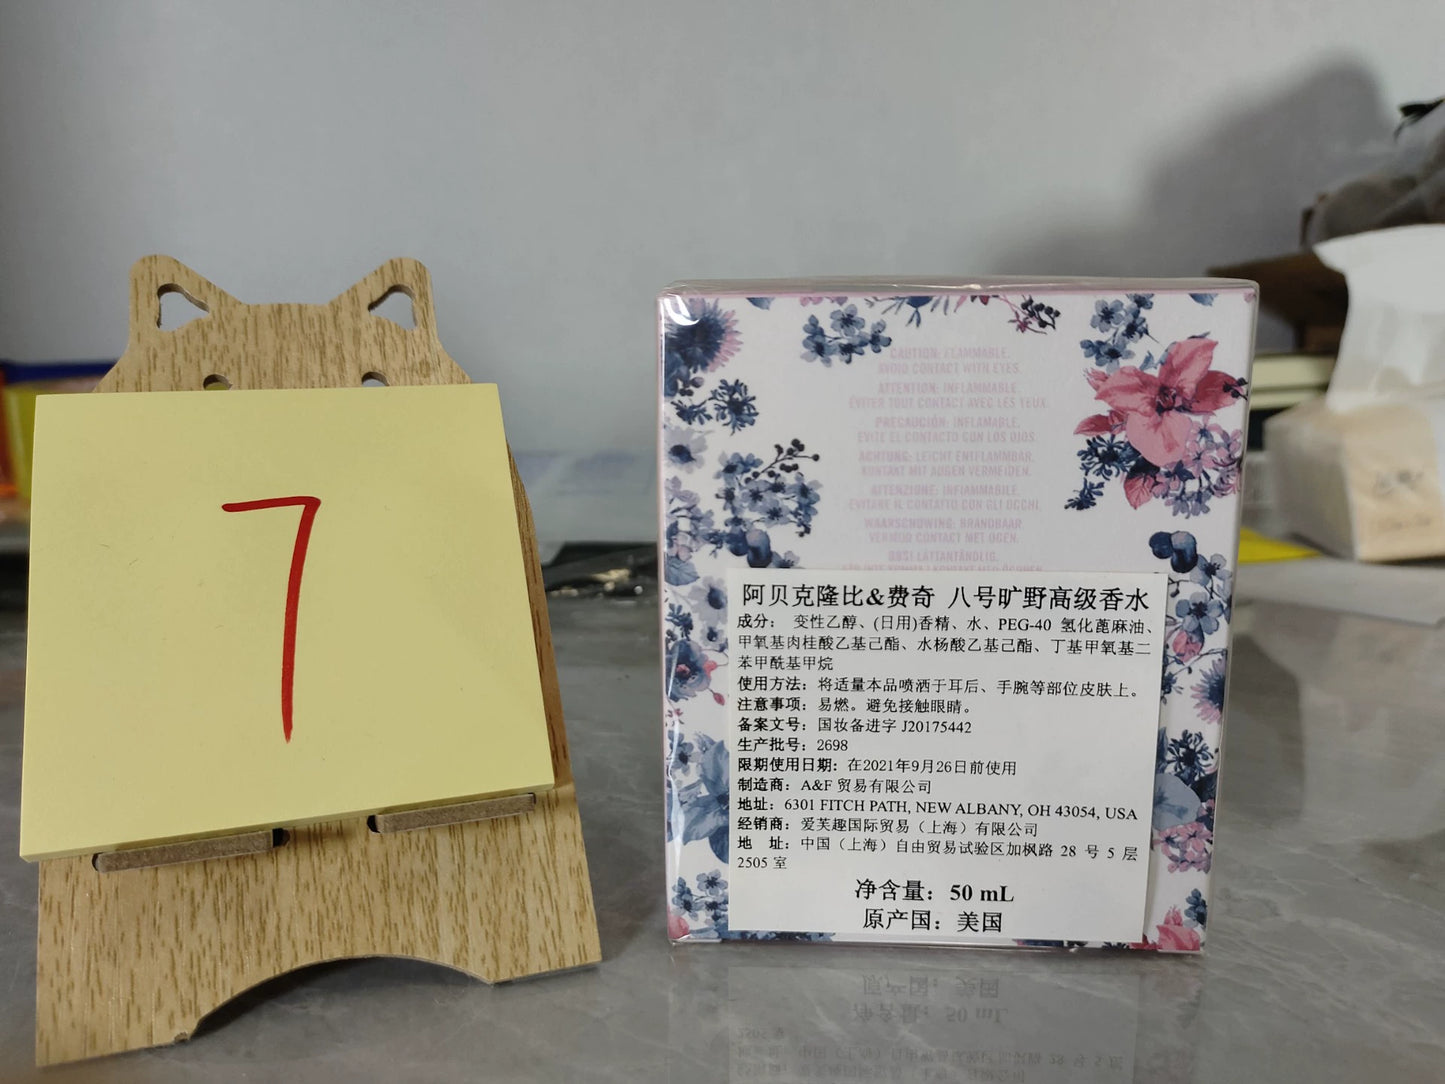 7
CAUTION: FLAMMABLE.
AVOID CONTACT WITH EYES.
ATTENTION: INFLAMMABLE.
ÉVITER TOUT CONTACT AVEC LES YEUX.
PRECAUCIÓN: INFLAMABLE.
EVITE EL CONTACTO CON LOS OJOS.
ACHTUNG: LEICHT ENTFLAMMBAR.
KONTAKT MIT AUGEN VERMEIDEN.
ATTENZIONE: INFIAMMABILE.
EVITARE IL CONTATTO CON GLI OCCHI.
WAARSCHUWING: BRANDBAAR
VERMIJD CONTACT MET OGEN.
OBS! LÄTTANTÄNDLIG.
阿贝克隆比&费奇 八号旷野高级香水
成分： 变性乙醇、(日用)香精、水、PEG-40 氢化蓖麻油、
甲氧基肉桂酸乙基己酯、水杨酸乙基己酯、丁基甲氧基二
苯甲酰基甲烷
使用方法：将适量本品喷洒于耳后、手腕等部位皮肤上。
注意事项：易燃。避免接触眼睛。
备案文号：国妆备进字 J20175442
生产批号：2698
限期使用日期：在2021年9月26日前使用
制造商：A&F 贸易有限公司
地址：6301 FITCH PATH, NEW ALBANY, OH 43054, USA
经销商：爱芙趣国际贸易（上海）有限公司
地 址：中国（上海）自由贸易试验区加枫路 28 号 5 层
2505 室
净含量：50 mL
原产国：美国